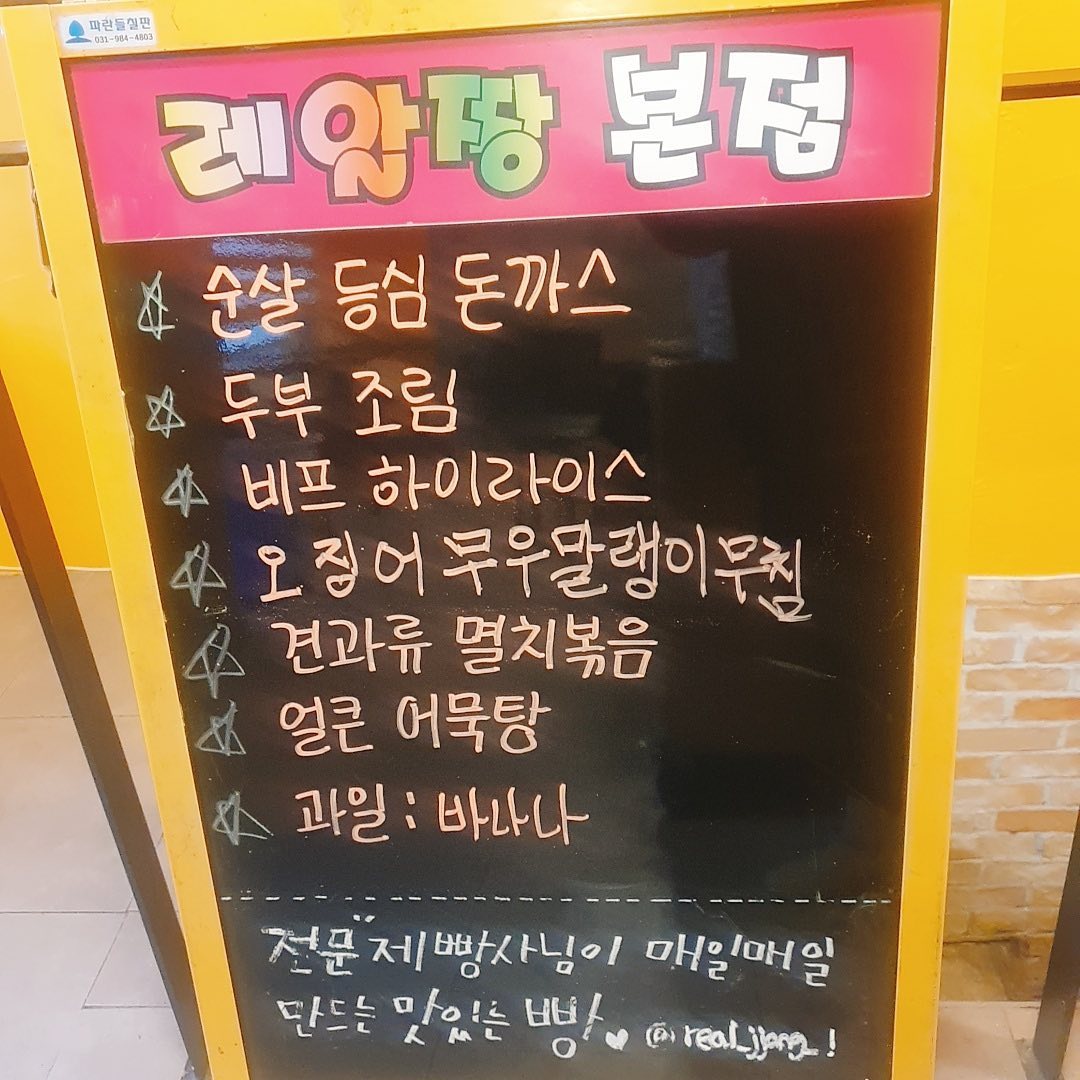 파란들칠판
031-984-4803
레알짱 본점
순살 등심 돈까스
두부 조림
비프 하이라이스
오징어 무우말랭이무침
견과류 멸치볶음
얼큰 어묵탕
과일 : 바나나
전문 제빵사님이 매일매일
만드는 맛있는 빵 ♥ @real_jjang_!